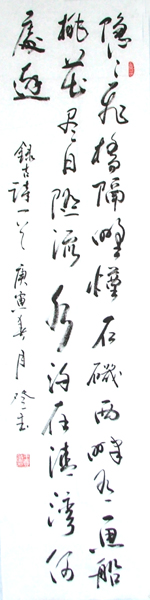 隐々飞桥隔野烟石磯西畔问渔船
桃花尽日随流水洞在清湾何
處边
録古詩一首 庚寅春月